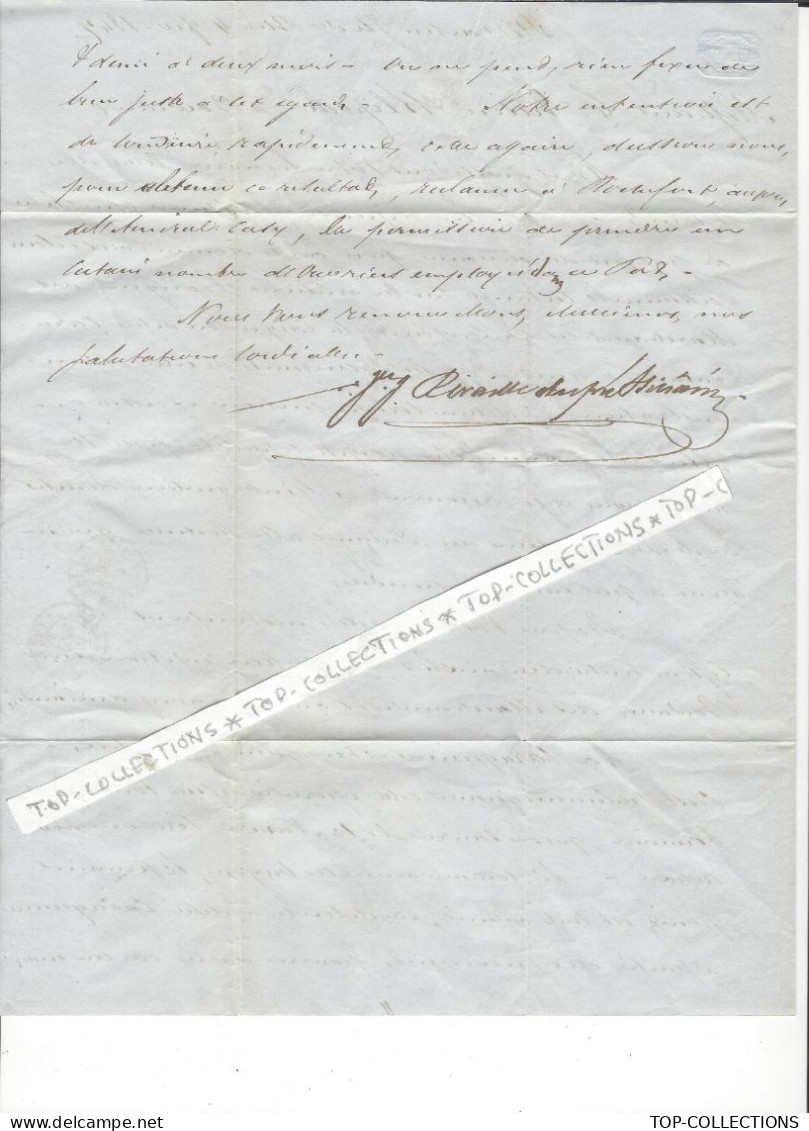 & demi à deux mois - On ne peut, rien fixer de
bien juste à cet égard - Notre intention est
de conduire, rapidement, cette affaire, dussions nous,
pour obtenir ce résultat, réclamer à Rochefort, auprès
de l'Amiral Casy, la permission de prendre un
certain nombre d'ouvriers employés dans ce Port -
Nous vous renouvellons, Messieurs, nos
salutations cordiales -
TOP-COLLECTIONS * TOP-COLLECTIONS * TOP-COLLECTIONS * TOP-C
TOP-COLLECTIONS